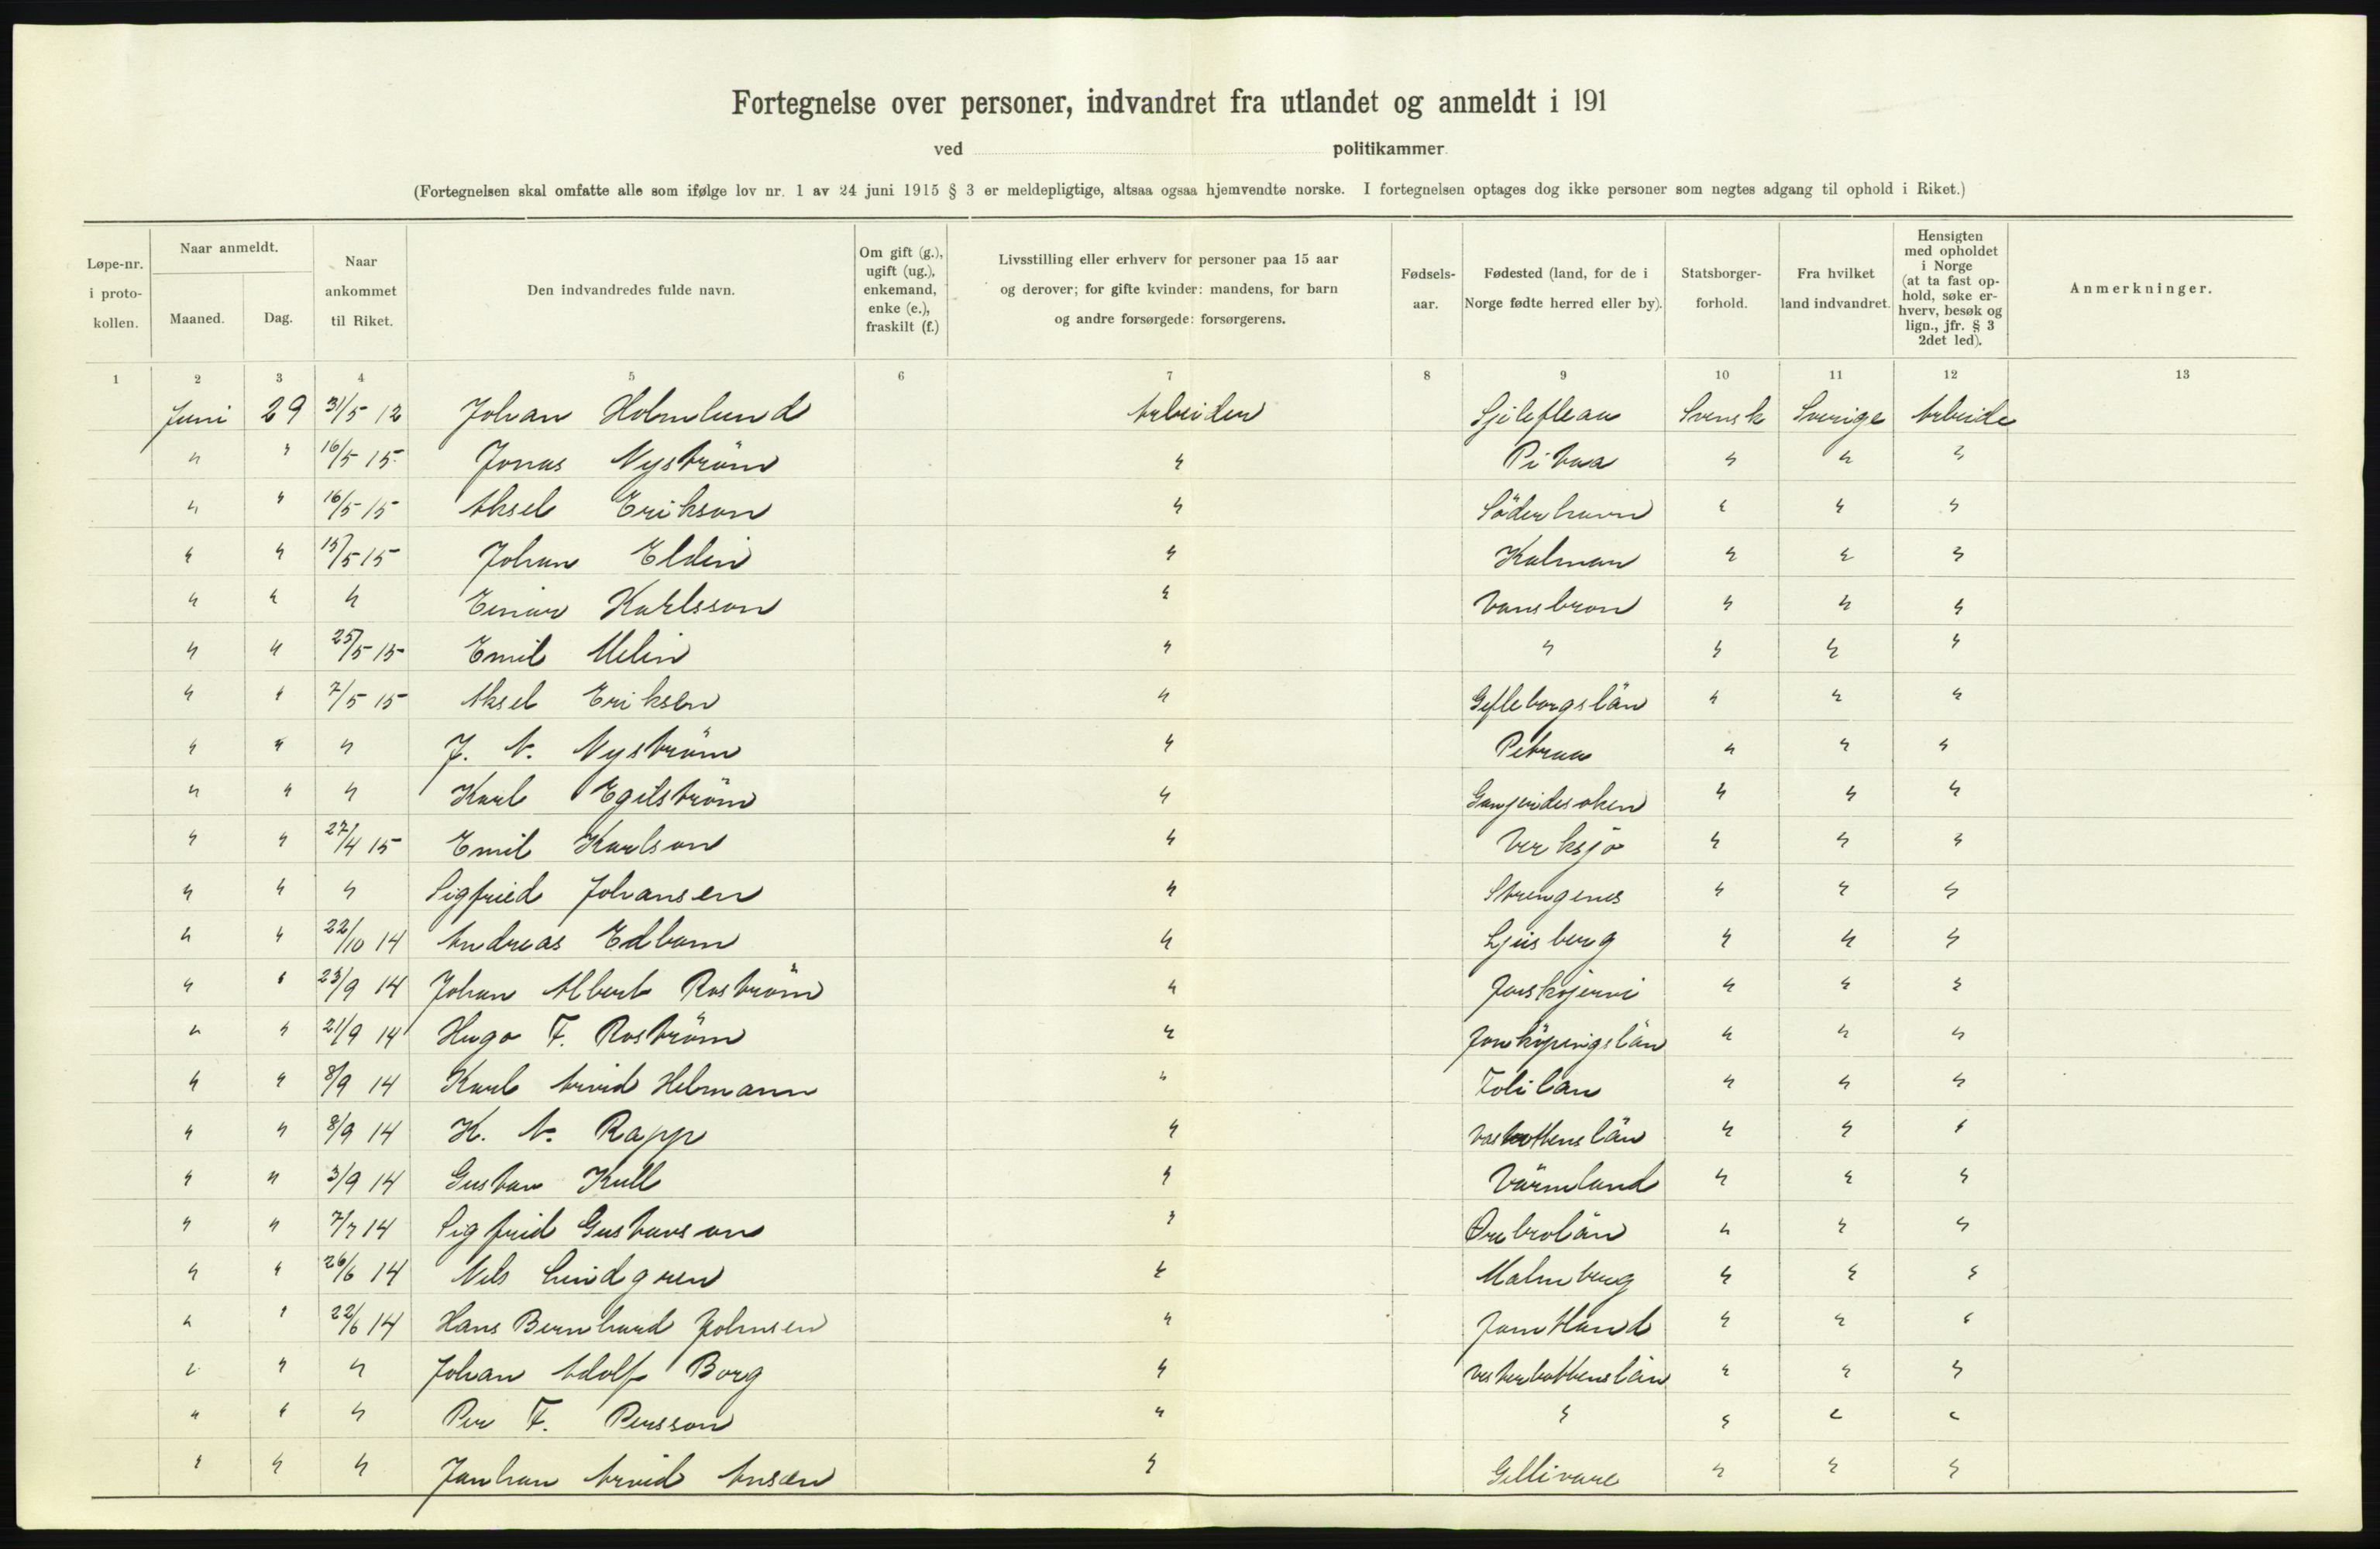 Fortegnelse over personer, indvandret fra utlandet og anmeldt i 191
ved politikammer
(Fortegnelsen skal omfatte alle som ifølge lov nr. 1 av 24 juni 1915 § 3 er meldepligtige, altsaa ogsaa hjemvendte norske. I fortegnelsen optages dog ikke personer som negtes adgang til ophold i Riket.)
Løpe-nr. i proto-kollen. Naar anmeldt. Maaned. Dag. Naar ankommet til Riket. Den indvandredes fulde navn. Om gift (g.), ugift (ug.), enkemand, enke (e.), fraskilt (f.) Livsstilling eller erhverv for personer paa 15 aar og derover; for gifte kvinder: mandens, for barn og andre forsørgede: forsørgerens. Fødsels-aar. Fødested (land, for de i Norge fødte herred eller by). Statsborger-forhold. Fra hvilket land indvandret. Hensigten med opholdet i Norge (at ta fast op-hold, søke er-hverv, besøk og lign., jfr. § 3 2det led). Anmerkninger.
1 2 3 4 5 6 7 8 9 10 11 12 13
Juni 29 31/5 12 Johan Holmlund Arbeider Sjelefleau Svensk Sverige Arbeide
" " 16/5 15 Jonas Nyström " Pitvaa " " "
" " 16/5 15 Aksel Erikson " Söderhavn " " "
" " 15/5 15 Johan Eldin " Kalmar " " "
" " " Einar Karlsson " Vansbron " " "
" " 25/5 15 Emil Melin " " " " "
" " 7/5 15 Aksel Eriksen " Gefleborgslän " " "
" " " J. A. Nyström " " " "
" " " Karl Egelström " " " "
" " 27/4 15 Emil Karlson " Verksjö " " "
" " " Sigfried Johansen " Strengenes " " "
" " 22/10 14 Andreas Edbom " Ljusberg " " "
" " 23/9 14 Johan Albert Roström " " " "
" " 21/9 14 Hugo F. Roström " Jonköpingslän " " "
" " 8/9 14 Karl Arvid Helmann " Folilan " " "
" " 8/9 14 K. A. Rapp " Vasbottenslän " " "
" " 3/9 14 Gustav Kull " Värmland " " "
" " 7/7 14 Sigfrid Gustavson " Ørebrolän " " "
" " 26/6 14 Nils Lindgren " Malmberg " " "
" " 22/6 14 Hans Bernhard Johnsen " Jamtland " " "
" " " Johan Adolf Borg " Vesterbottenslän " " "
" " " Per F. Persson " " " " "
" " " Janhan Arvid Ansen " Gellivare " " "